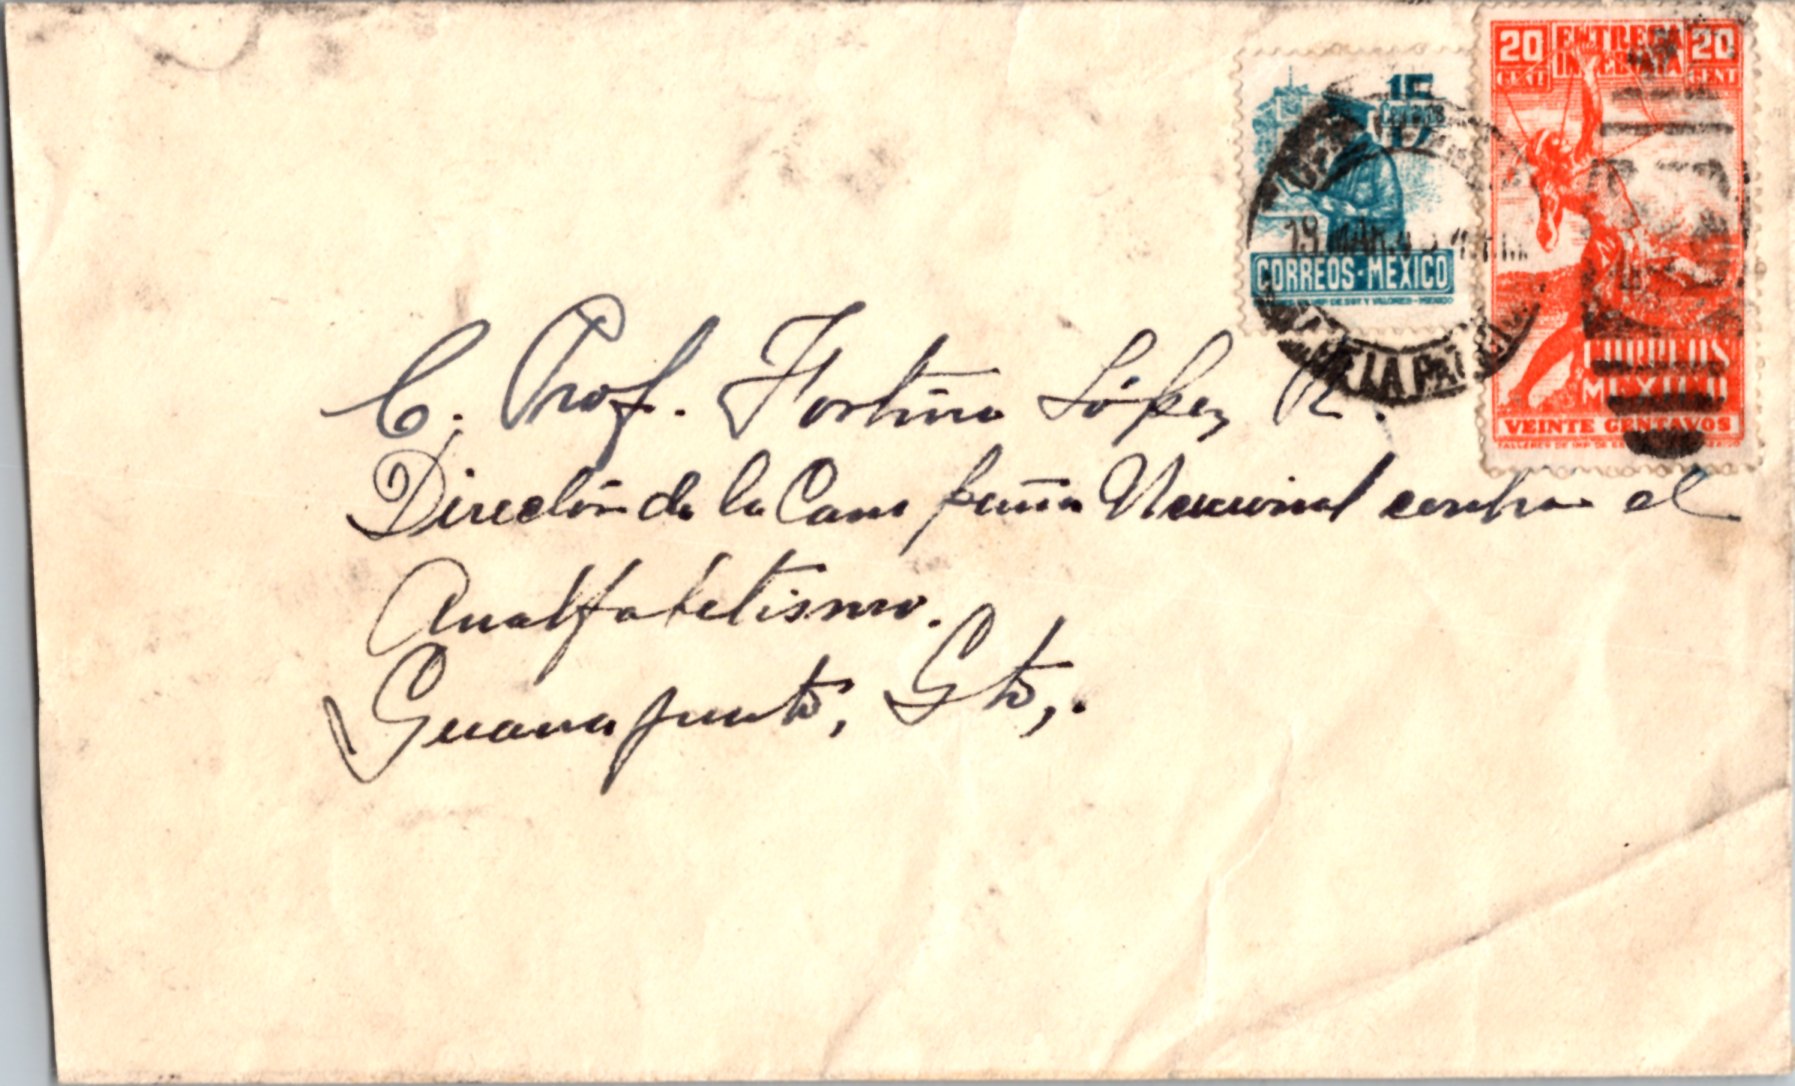 20 CENT ENTREGA INMEDIATA 20 CENT
15
CORREOS-MEXICO
19 MAR.4
LA PAT
CORREOS
MEXICO
VEINTE CENTAVOS
C. Prof. Fortino López R.
Dirección de la Campaña Nacional contra el
Analfabetismo.
Guanajuato, Gto,.